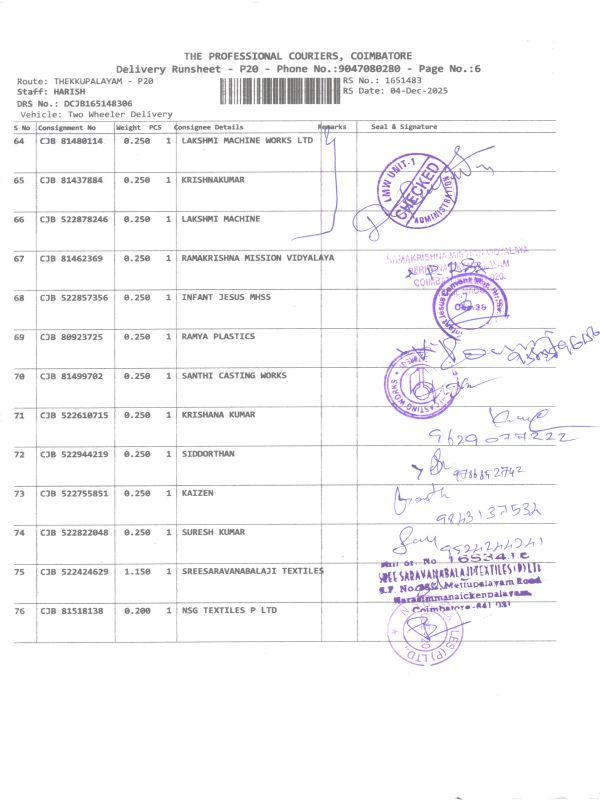 THE PROFESSIONAL COURIERS, COIMBATORE
Delivery Runsheet - P20 - Phone No.:9047080280 - Page No.:6
Route: THEKKUPALAYAM - P20 RS No.: 1651483
Staff: HARISH RS Date: 04-Dec-2025
DRS No.: DCJB165148306
Vehicle: Two Wheeler Delivery
S No Consignment No Weight PCS Consignee Details Remarks Seal & Signature
64 CJB 81480114 0.250 1 LAKSHMI MACHINE WORKS LTD
LMW UNIT-1 CHECKED ADMINISTRATION
65 CJB 81437884 0.250 1 KRISHNAKUMAR
66 CJB 522878246 0.250 1 LAKSHMI MACHINE
67 CJB 81462369 0.250 1 RAMAKRISHNA MISSION VIDYALAYA
RAMAKRISHNA MISSION VIDYALAYA
68 CJB 522857356 0.250 1 INFANT JESUS MHSS
69 CJB 80923725 0.250 1 RAMYA PLASTICS
70 CJB 81499702 0.250 1 SANTHI CASTING WORKS
CASTING WORKS
71 CJB 522610715 0.250 1 KRISHANA KUMAR
9629077222
72 CJB 522944219 0.250 1 SIDDORTHAN
9786852742
73 CJB 522755851 0.250 1 KAIZEN
9843137534
74 CJB 522822048 0.250 1 SURESH KUMAR
9524244241
75 CJB 522424629 1.150 1 SREESARAVANABALAJI TEXTILES
SREE SARAVANABALAJI TEXTILES (P) LTD
Mettupalayam Road
Narasimmanaickenpalayam,
Coimbatore-641 031
76 CJB 81518138 0.200 1 NSG TEXTILES P LTD